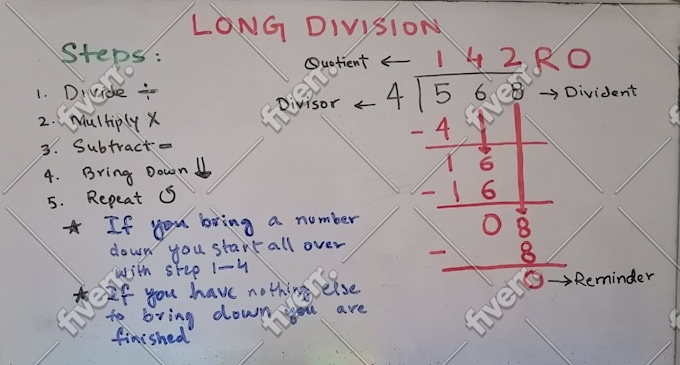 LONG DIVISION
Steps:
1. Divide ÷
2. Multiply X
3. Subtract -
4. Bring Down ⇓
5. Repeat ↺
★ If you bring a number
down you start all over
with step 1-4
★ If you have nothing else
to bring down you are
finished
Quotient ← 1 4 2 R 0
Divisor ← 4 5 6 8 → Divident
- 4
1 6
- 1 6
0 8
- 8
0 → Reminder
fiverr.